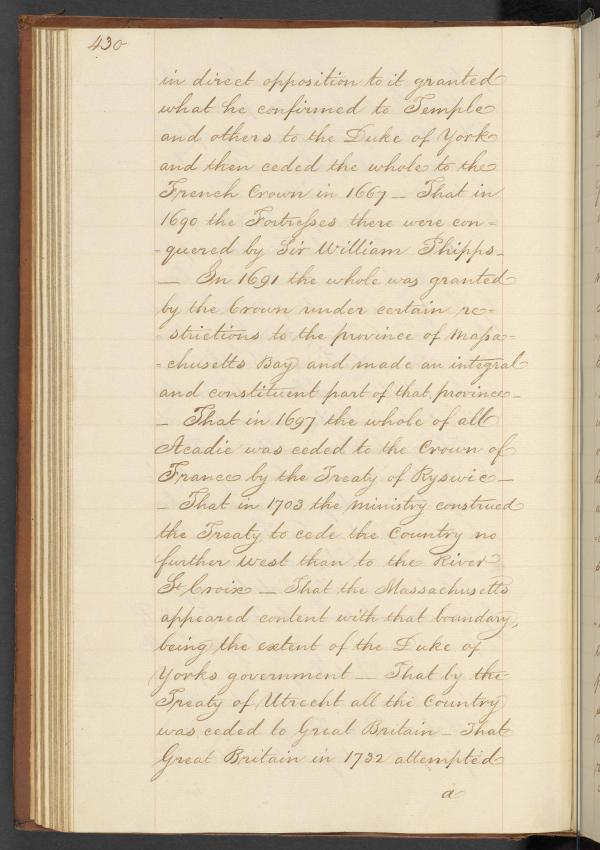 430
in direct opposition to it granted
what he confirmed to Temple
and others to the Duke of York
and then ceded the whole to the
French Crown in 1667 — That in
1690 the Fortresses there were con=
=quered by Sir William Phipps_
— In 1691 the whole was granted
by the Crown under certain re=
=strictions to the province of Massa=
=chusetts Bay and made an integral
and constituent part of that province_
_ That in 1697 the whole of all
Acadie was ceded to the Crown of
France by the Treaty of Ryswic —
_ That in 1703 the ministry construed
the Treaty to cede the Country no
further west than to the River
St Croix — That the Massachusetts
appeared content with that boundary,
being the extent of the Duke of
Yorks government — That by the
Treaty of Utrecht all the Country
was ceded to Great Britain — That
Great Britain in 1732 attempted
a